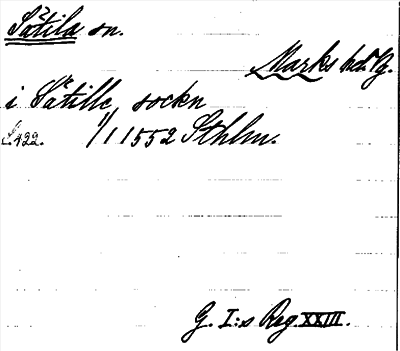 Sätila sn.
Marks hd. Vg.
i Sätille sockn
S. 422. 1/1 1552 Sthlm.
G. I:s Reg. XXIII.